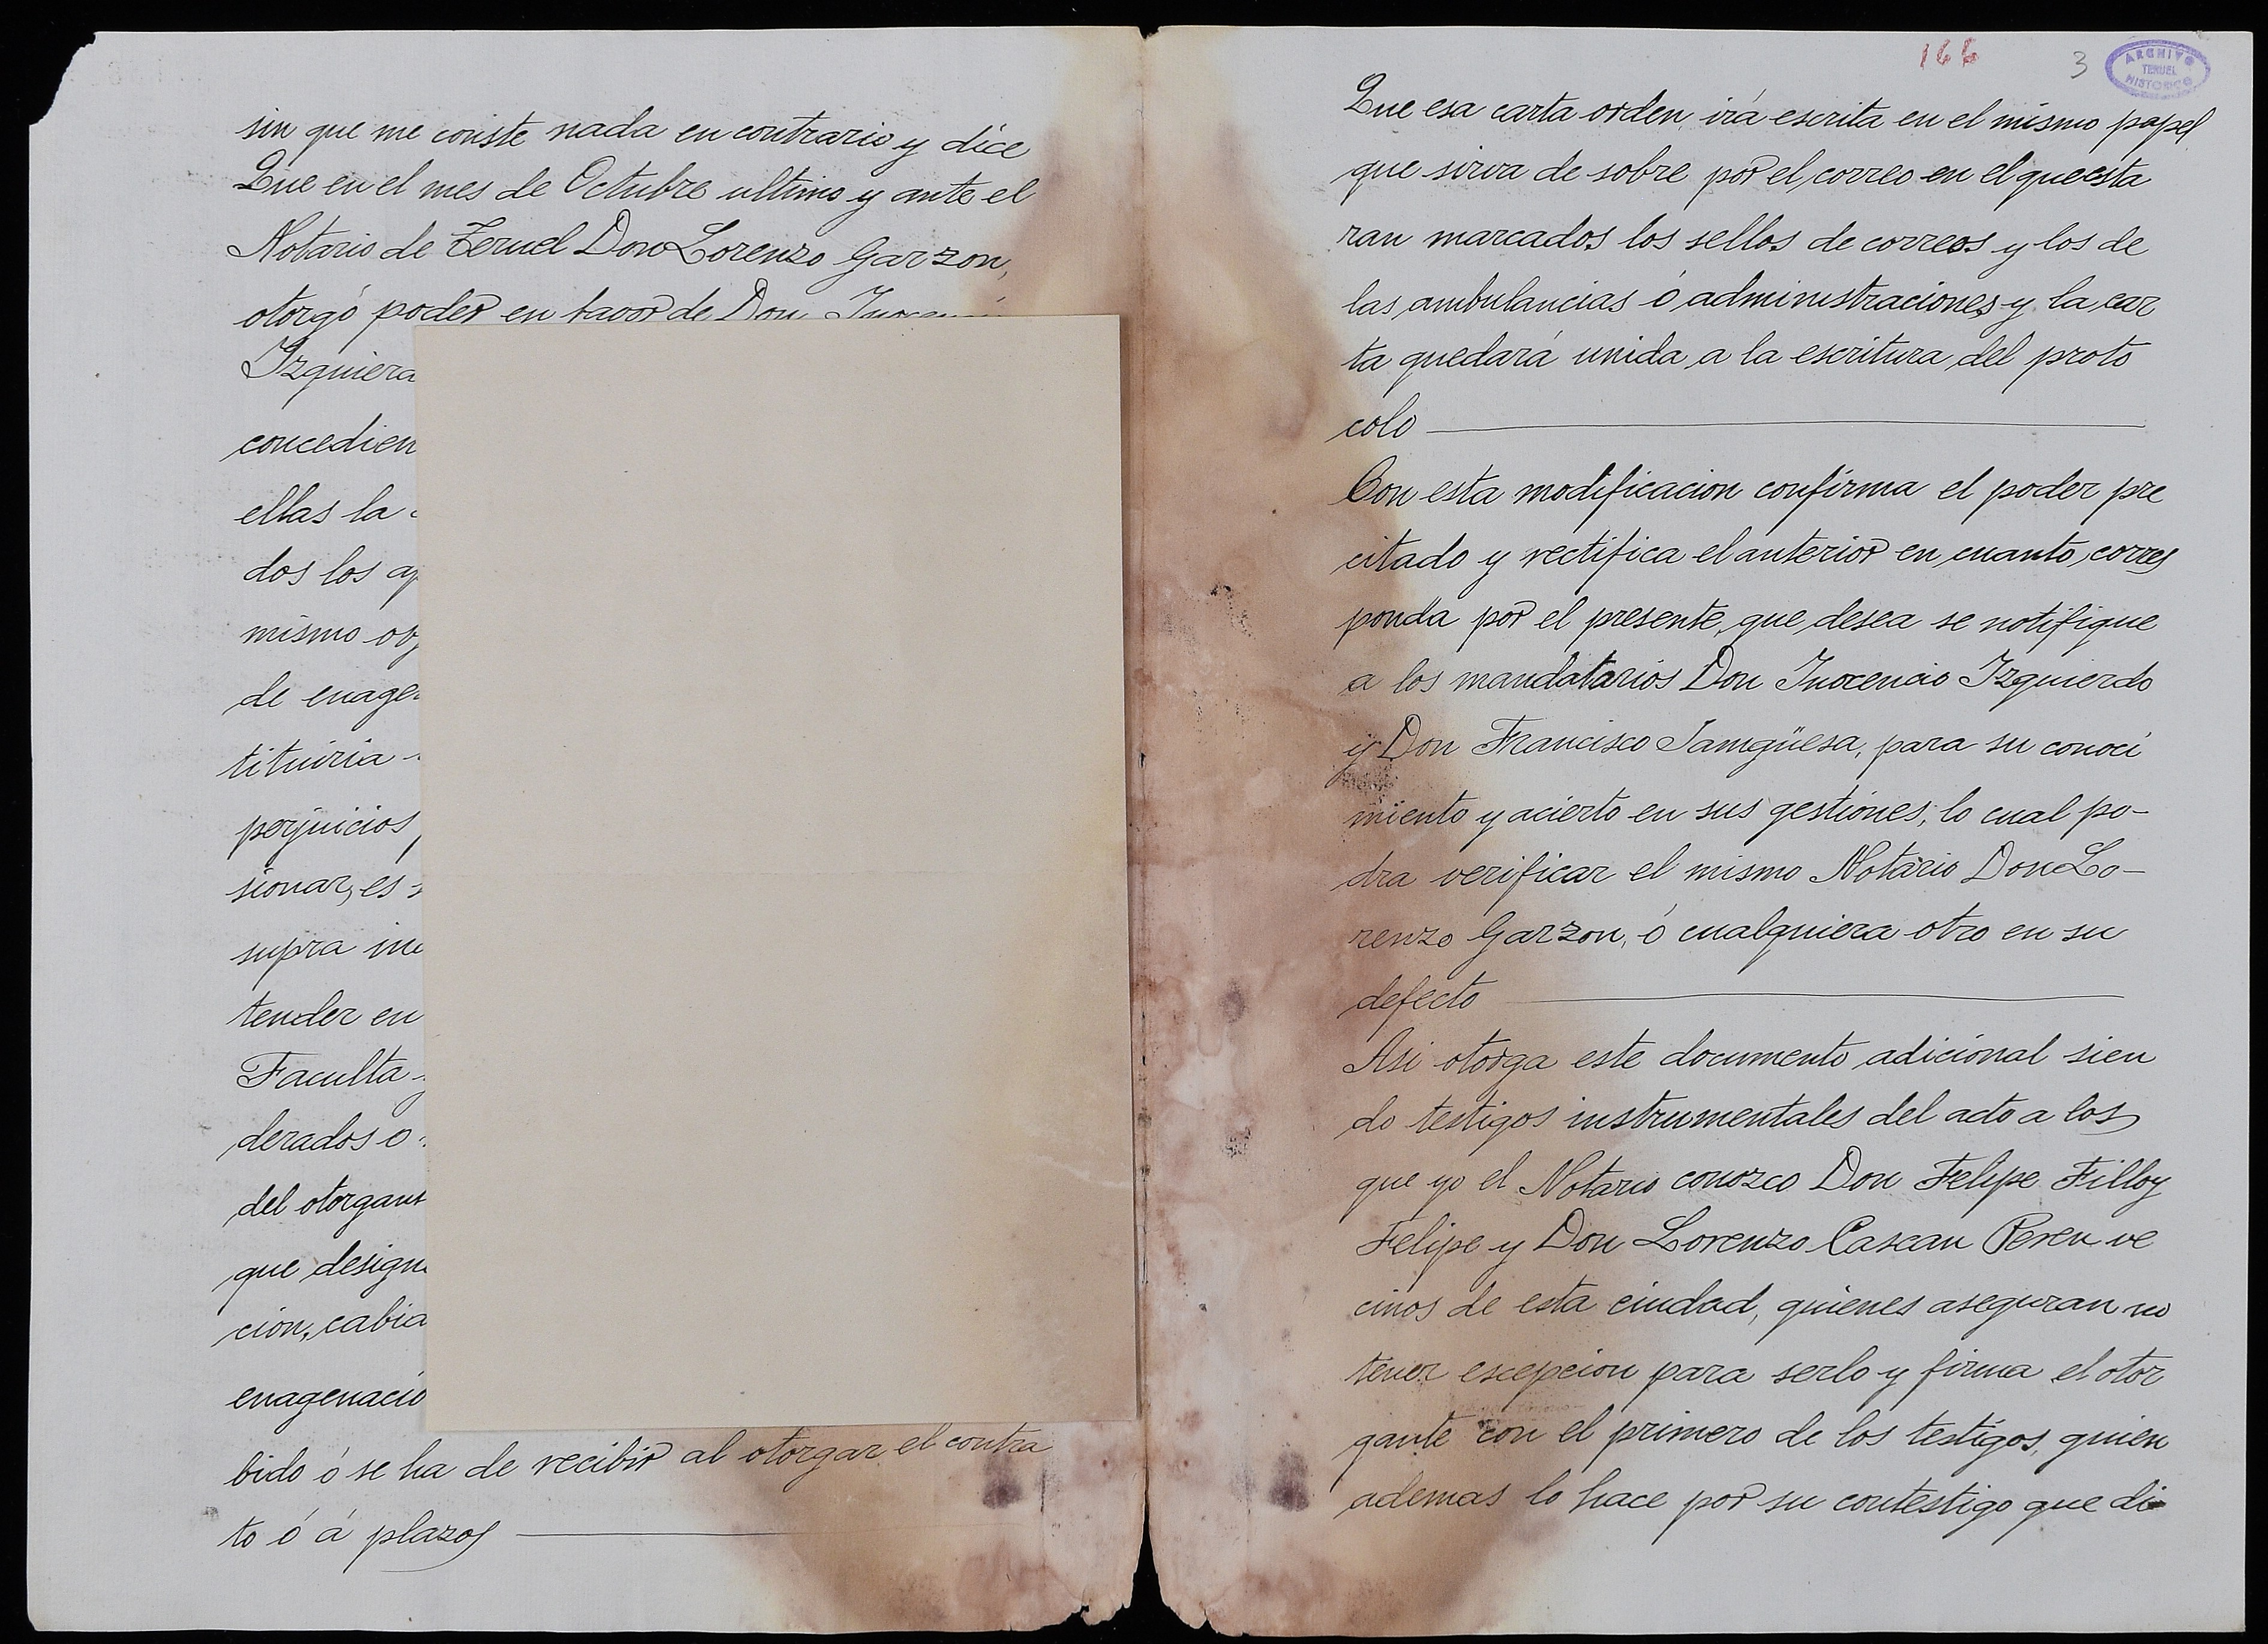 sin que me conste nada en contrario y dice
Que en el mes de Octubre ultimo y ante el
Notario de Teruel Don Lorenzo Garzon,
otorgó poder en favor de Don
concedien
ellas la
dos los
mismo
de
tituiria
perjuicios
sionar, es
supra
tender en
Faculta
derados o
del
que
cion, cabia
bido ó se ha de recibir al otorgar el contra
to ó á plazos
166
3
ARCHIVO
TERUEL
HISTORICO
Que esa carta orden, irá escrita en el mismo papel
que sirva de sobre por el correo en el que esta
ran marcados los sellos de correos y los de
las ambulancias ó administraciones y la car
ta quedará unida a la escritura del proto
colo
Con esta modificacion confirma el poder pre
citado y rectifica el anterior en cuanto corres
ponda por el presente, que desea se notifique
a los mandatarios Don Inocencio Izquierdo
y Don Francisco para su conoci
miento y acierto en sus gestiones, lo cual po-
dra verificar el mismo Notario Don Lo-
renzo Garzon, ó cualquiera otro en su
defecto
Asi otorga este documento adicional sien
do testigos instrumentales del acto a los
que yo el Notario conozco Don Felipe Filloy
Felipe y Don Lorenzo Cascan Peren ve
cinos de esta ciudad, quienes aseguran no
tener escepcion para serlo y firma el otor
gante con el primero de los testigos, quien
ademas lo hace por su contestigo que di